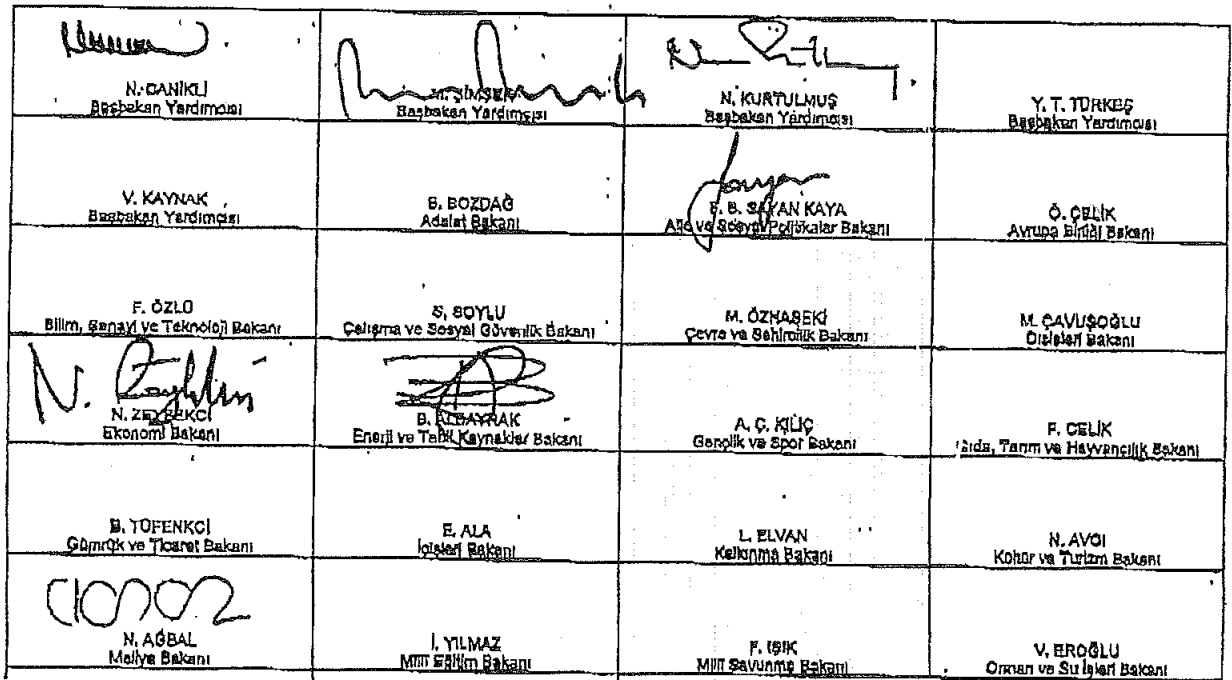 N. CANİKLİ
Başbakan Yardımcısı
M. ŞİMŞEK
Başbakan Yardımcısı
N. KURTULMUŞ
Başbakan Yardımcısı
Y. T. TÜRKEŞ
Başbakan Yardımcısı
V. KAYNAK
Başbakan Yardımcısı
B. BOZDAĞ
Adalet Bakanı
F. B. SAYAN KAYA
Aile ve Sosyal Politikalar Bakanı
Ö. ÇELİK
Avrupa Birliği Bakanı
F. ÖZLÜ
Bilim, Sanayi ve Teknoloji Bakanı
S. SOYLU
Çalışma ve Sosyal Güvenlik Bakanı
M. ÖZHASEKİ
Çevre ve Şehircilik Bakanı
M. ÇAVUŞOĞLU
Dışişleri Bakanı
N. ZEYBEKCİ
Ekonomi Bakanı
B. ALBAYRAK
Enerji ve Tabii Kaynaklar Bakanı
A. Ç. KILIÇ
Gençlik ve Spor Bakanı
F. ÇELİK
Gıda, Tarım ve Hayvancılık Bakanı
B. TÜFENKCİ
Gümrük ve Ticaret Bakanı
E. ALA
İçişleri Bakanı
L. ELVAN
Kalkınma Bakanı
N. AVCI
Kültür ve Turizm Bakanı
N. AĞBAL
Maliye Bakanı
İ. YILMAZ
Milli Eğitim Bakanı
F. IŞIK
Milli Savunma Bakanı
V. EROĞLU
Orman ve Su İşleri Bakanı